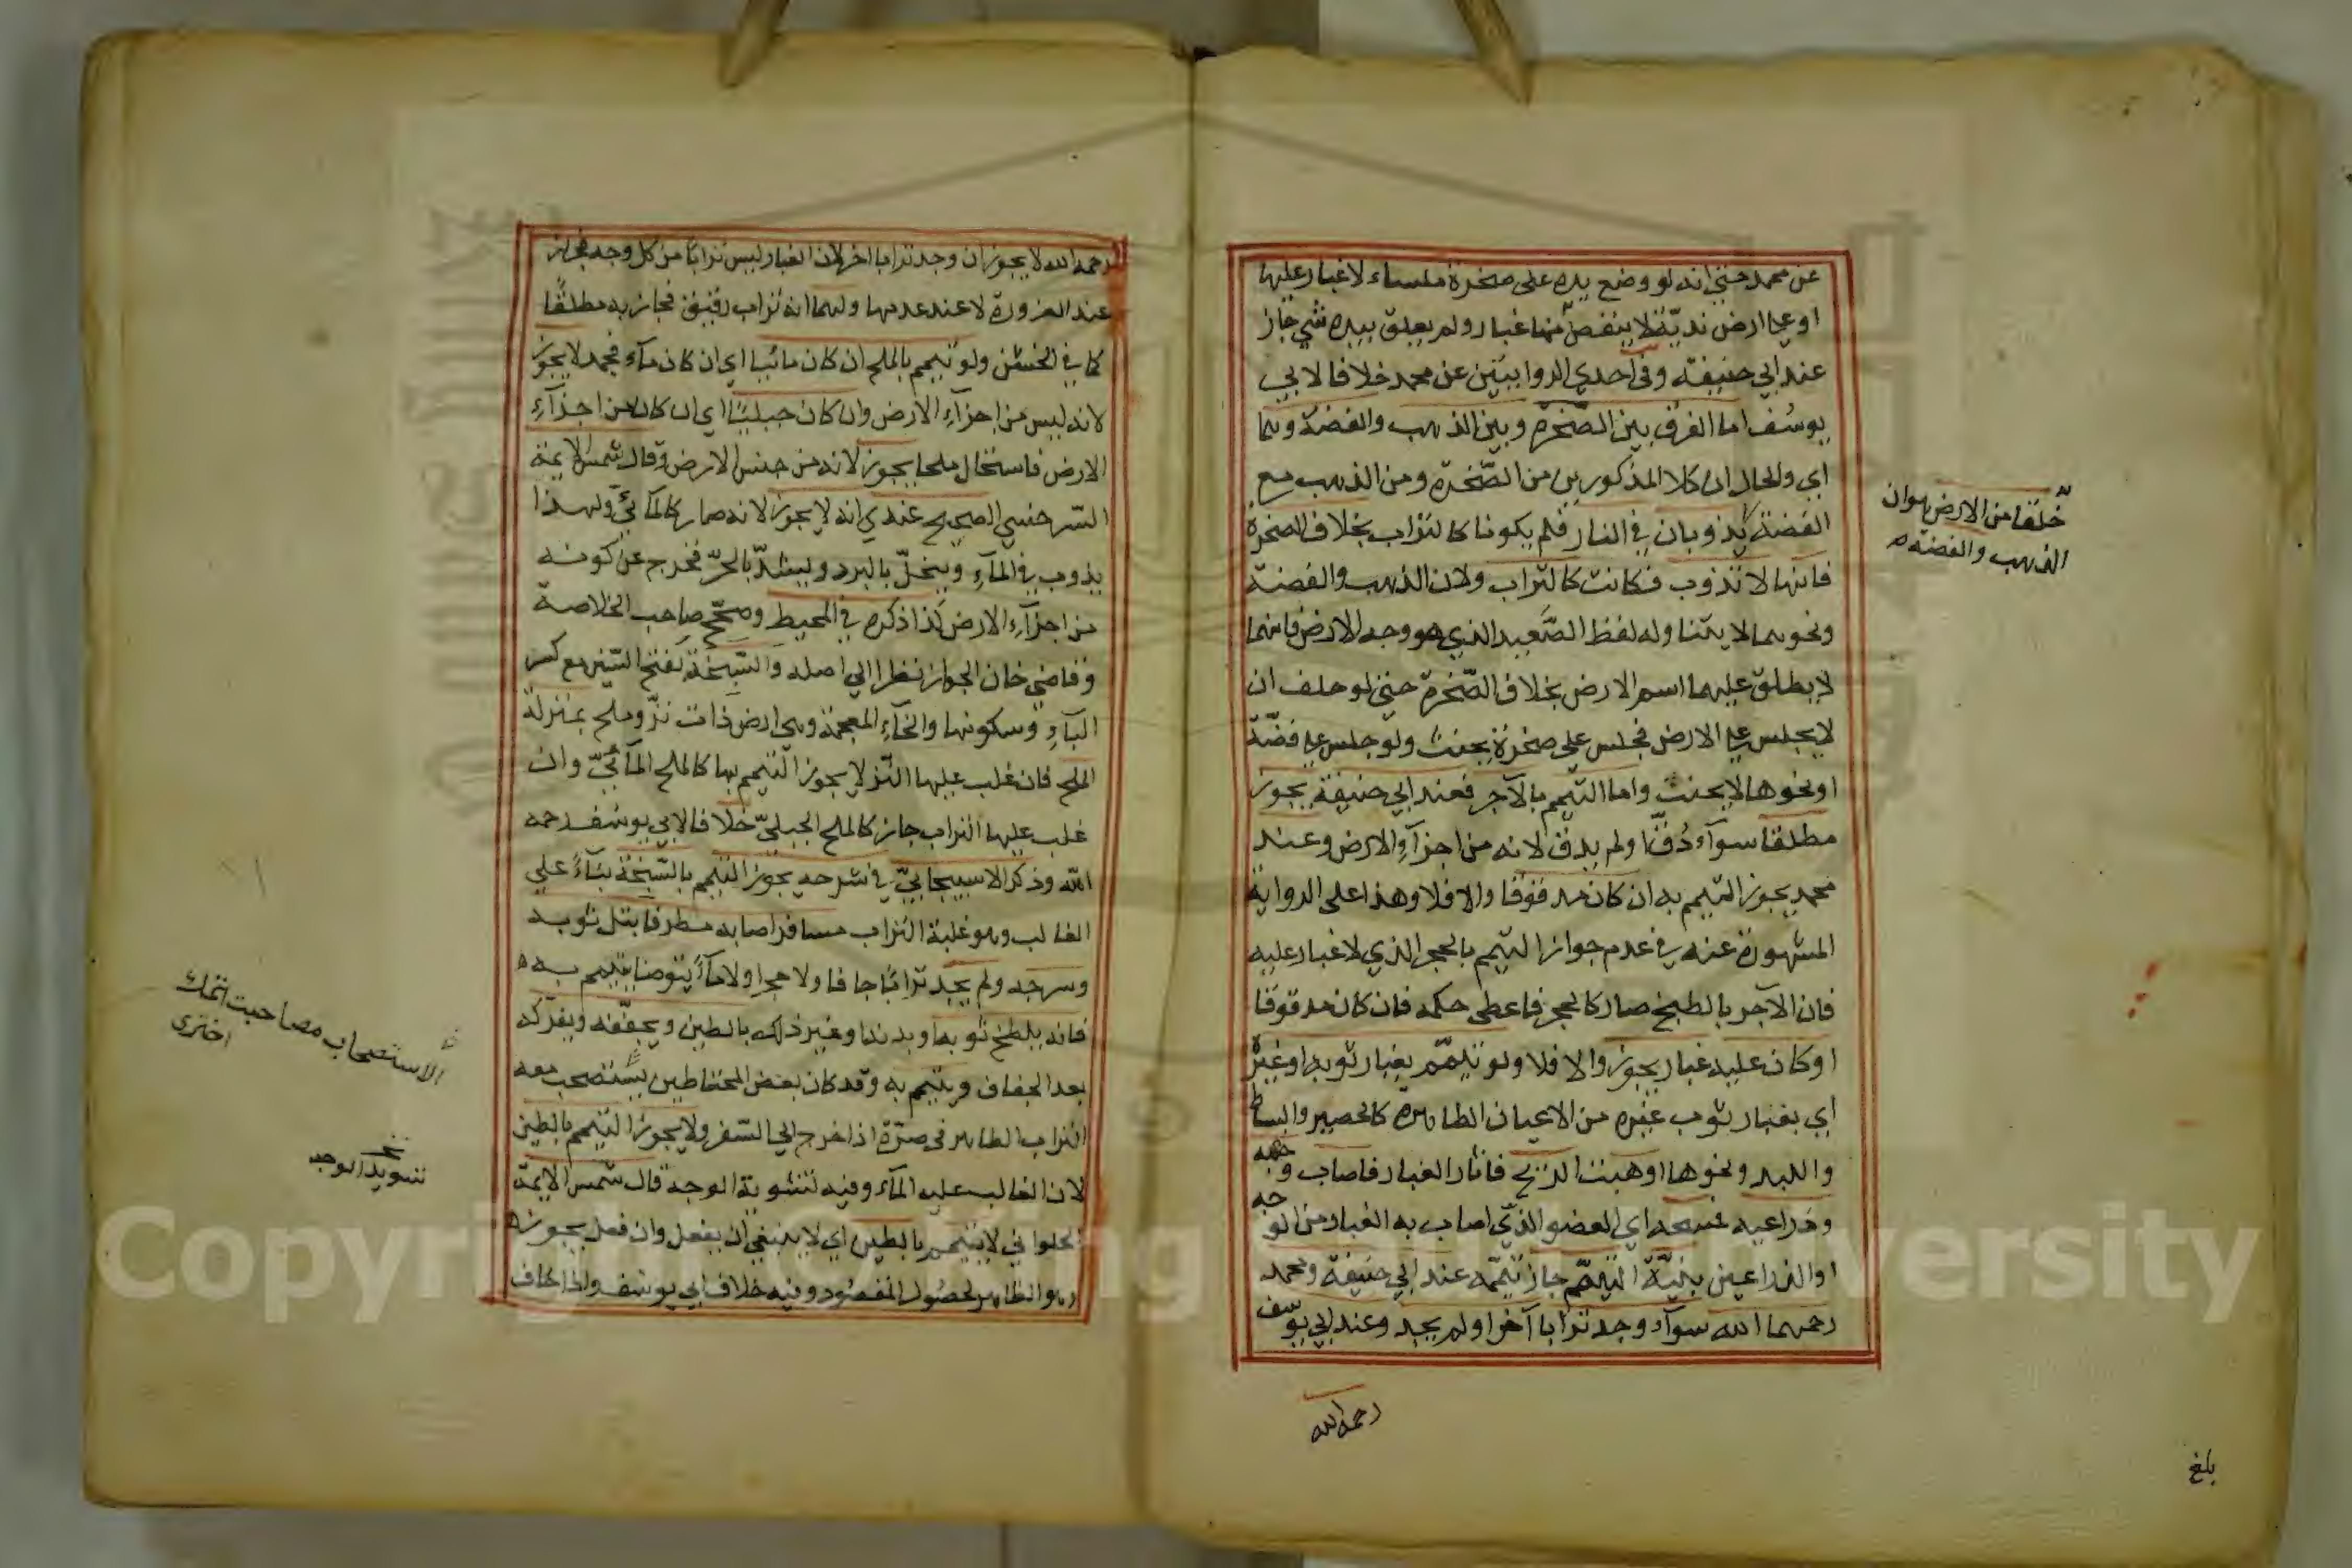 عن محمد حتى انه لو وضع يده على صخرة ملساء لا غبار عليها
او على ارض نديّة لا ينفض منها غبار ولم يعلق بيده شي جاز
عند ابي حنيفة وفى احدي الروايتين عن محمد خلافا لابي
يوسف اما الفرق بين الصخرة وبين الذهب والفضة وهما
اي والحال ان كلا المذكورين من الصّخرة ومن الذهب مع
الفضة يذوبان في النار فلم يكونا كالتراب بخلاف الصخرة
فانها لا تذوب فكانت كالتراب ولان الذهب والفضة
ونحوهما لا يتناوله لفظ الصّعيد الذي هو وجه الارض فانهما
لا يطلق عليهما اسم الارض بخلاف الصّخرة حتى لو حلف ان
لا يجلس على الارض فجلس على صخرة يحنث ولو جلس على فضّة
او نحوها لا يحنث واما التيمم بالآجر فعند ابي حنيفة يجوز
مطلقا سوآء دُقّ او لم يدق لانه من اجزآء الارض وعند
محمد يجوز التيمم به ان كان مدقوقا والا فلا وهذا على الرواية
المشهورة عنه في عدم جواز التيمم بالحجر الذي لا غبار عليه
فان الآجر بالطبخ صار كالحجر فاعطى حكمه فان كان مدقوقا
او كان عليه غبار يجوز والا فلا ولو تيمّم بغبار ثوبه او غيره
اي بغبار ثوب غيره من الاعيان الطاهرة كالحصير والبساط
واللبد ونحوها او هبت الريح فاثار الغبار فاصاب وجهه
وذراعيه فمسحه اي العضو الذي اصاب به الغبار من الوجه
او الذراعين بنيّة التيمّم جاز تيمّمه عند ابي حنيفة ومحمد
رحمهما الله سوآء وجد ترابا آخر او لم يجد وعند ابي يوسف
رحمه الله
خلقا من الارض هوان
الذهب والفضة
بلغ
رحمه الله لا يجوز ان وجد ترابا اخر لان الغبار ليس ترابًا من كل وجه فجاز
عند الضرورة لا عند عدمها ولهما انه تراب رقيق فجاز به مطلقًا
كما في الخشن ولو تيمم بالملح ان كان مائيا اي ان كان مآء فجمد لا يجوز
لانه ليس من اجزآء الارض وان كان جبليًّا اي ان كان من اجزآء
الارض فاستحال ملحا يجوز لانه من جنس الارض وقال شمس الايمة
السّرخسي الصحيح عندي انه لا يجوز لانه صار كالمائيّ ولهذا
يذوب في المآء وينحلّ بالبرد ويشتدّ بالحرّ فخرج عن كونه
من اجزآء الارض كذا ذكره في المحيط وصحّح صاحب الخلاصة
وقاضي خان الجواز نظرا الي اصله والسّبخة بفتح السّين مع كسر
البآء وسكونها والخآء المعجمة وهي ارض ذات نزّ وملح بمنزلة
الملح فان غلب عليها النّز لا يجوز التيمم بها كالملح المآئيّ وان
غلب عليها التراب جاز كالملح الجبليّ خلافا لابي يوسف رحمه
الله وذكر الاسبيجابيّ في شرحه يجوز التيمم بالسّبخة بنآءً على
الغالب وهو غلبة التراب مسافر اصابه مطر فابتل ثوبه
وسرجه ولم يجد ترابًا جافا ولا حجرا ولا مآءً يتوضا يتيمم به
فانه يلطخ ثوبه او بدنه او غير ذلك بالطين ويجفّفه ويفركه
بعد الجفاف ويتيمم به وقد كان بعض المحتاطين يستصحب معه
التراب الطاهر فى صرّة اذا خرج الى السّفر ولا يجوز التيمم بالطين
لان الغالب عليه المآء وفيه تشوية الوجه قال شمس الايمّة
الحلواني لا يتيمم بالطين اي لا ينبغي ان يفعل وان فعل يجوز
وهو الظاهر لحصُول المقصُود وفيه خلاف ابي يوسف واذا خاف
الاستصحاب مصاحبت اتمك
اختري
نخـ
تسويد الوجه
Copyright © King Saud University